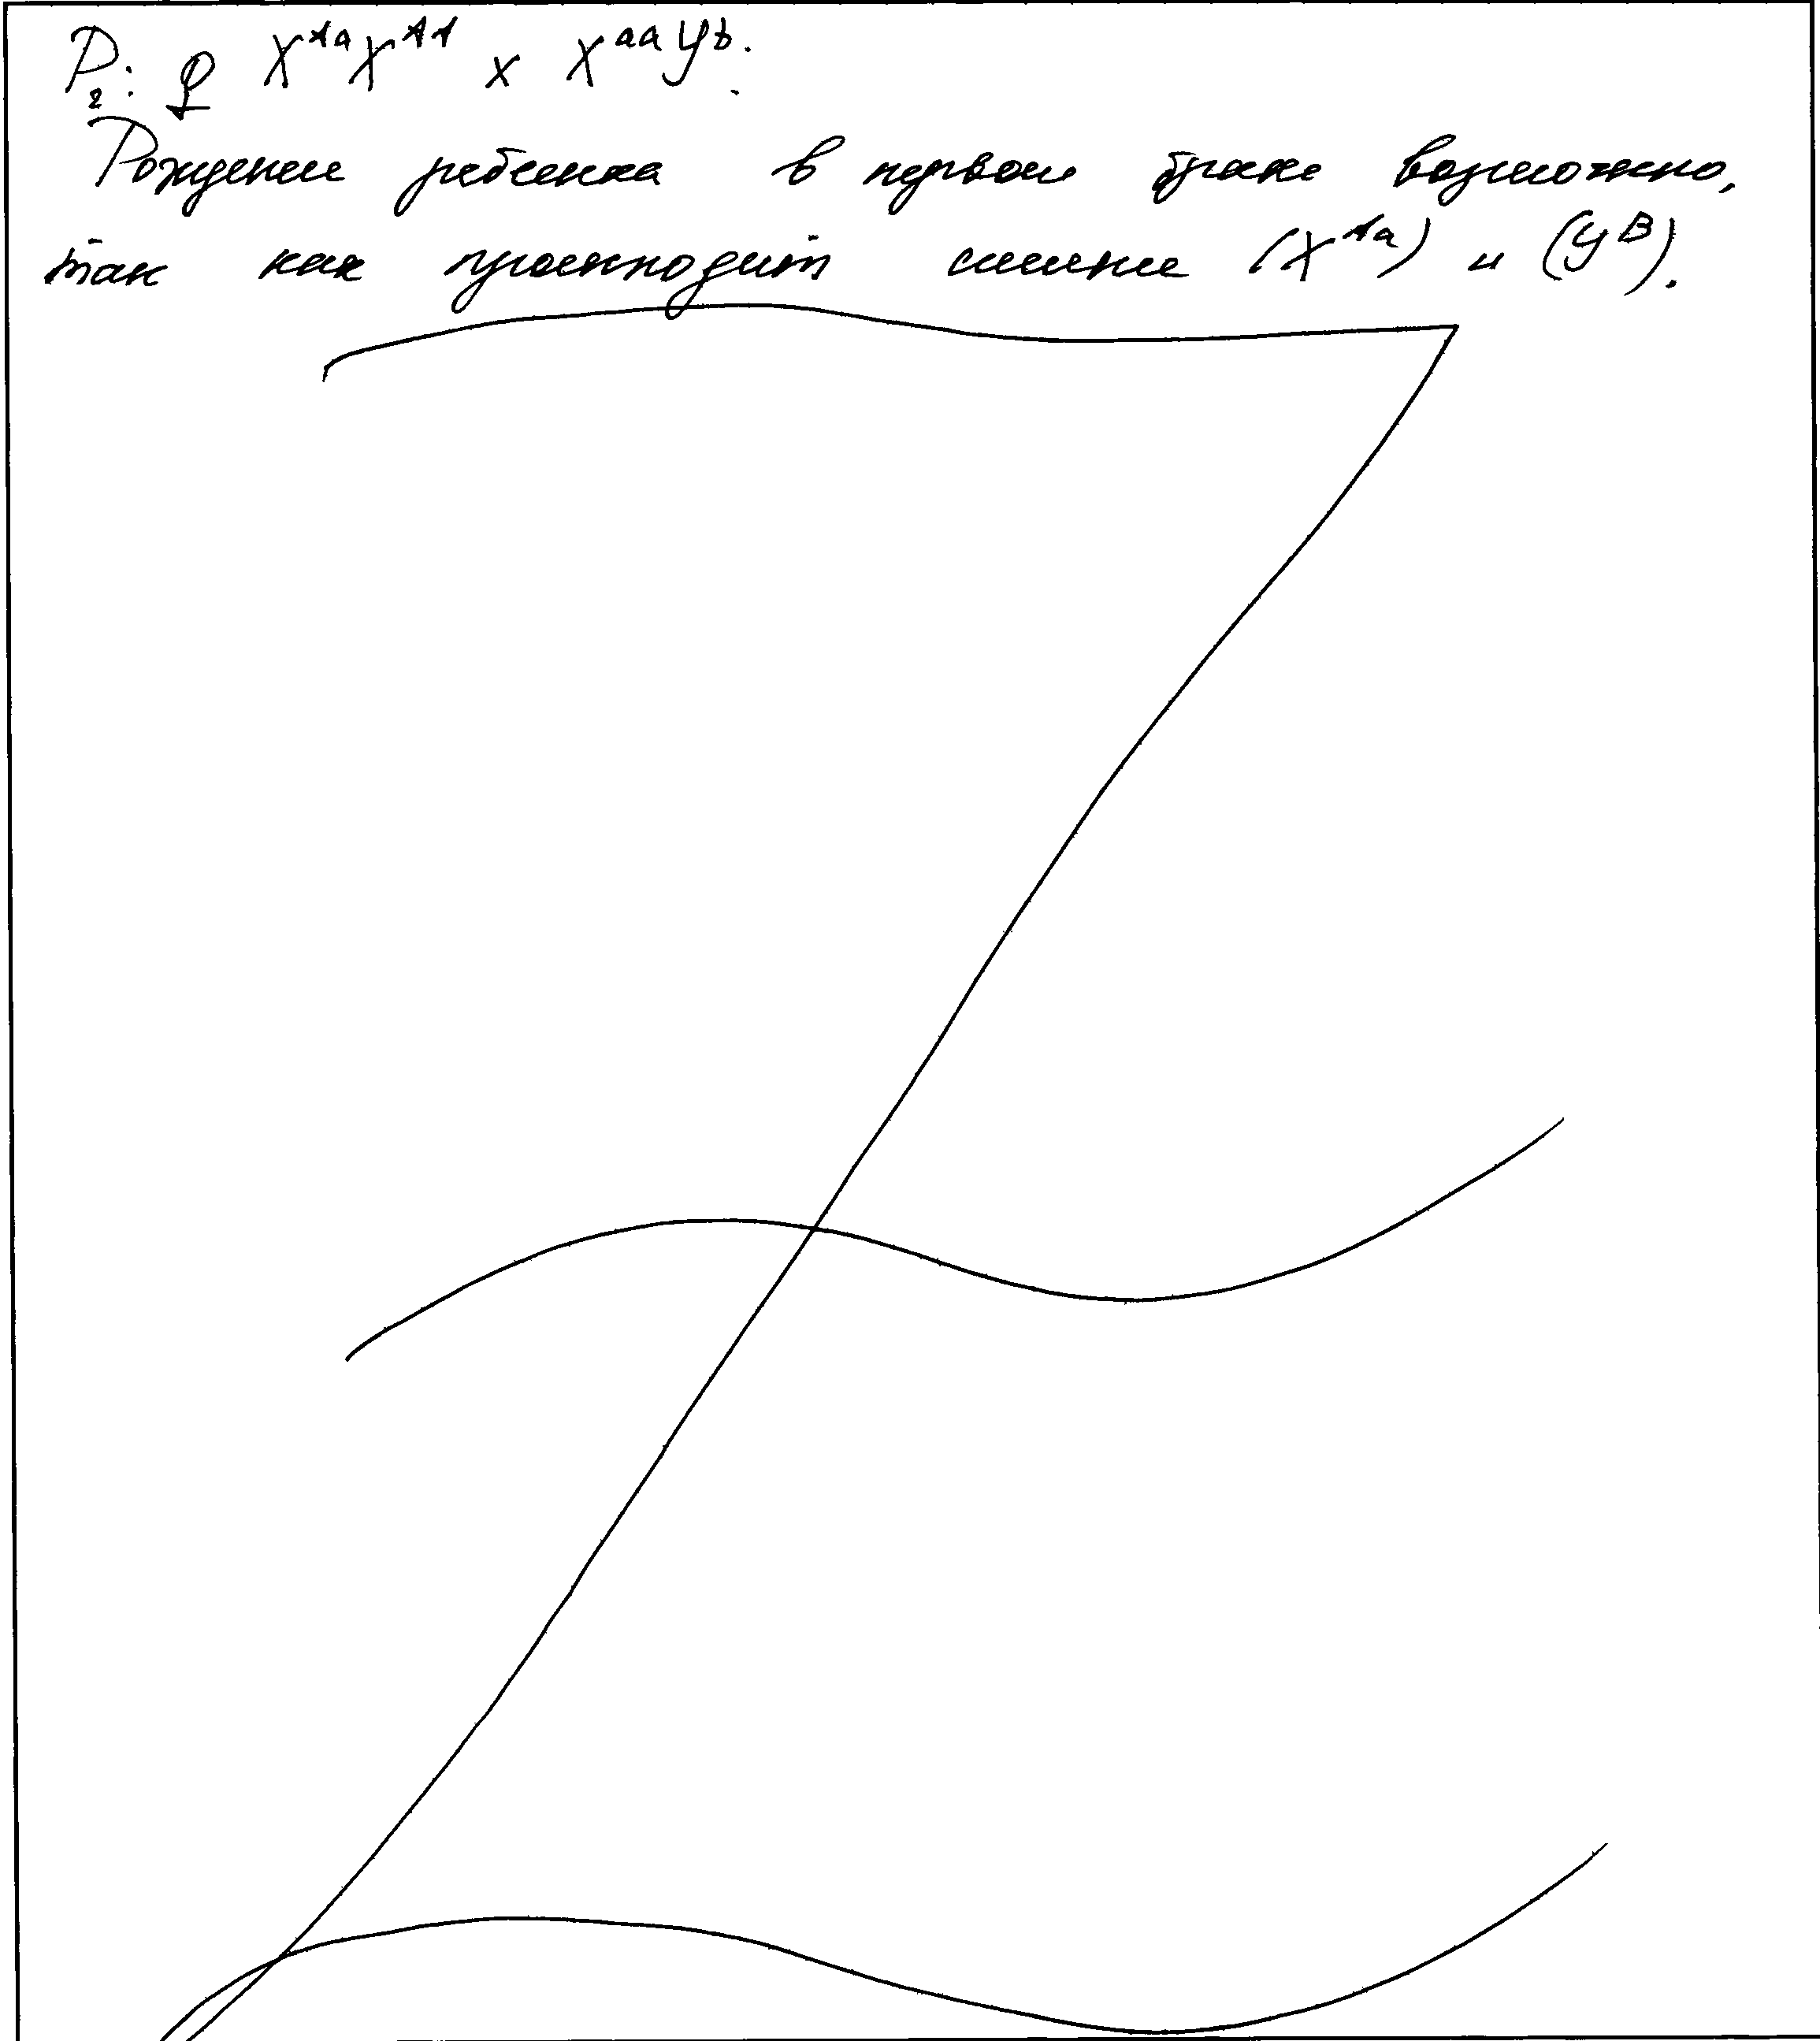 P₂: ♀ X^Aa X^AA x X^aa У^b.
Рождение ребенка в первом браке возможно,
так как происходит слияние (X^Aa) и (У^B).